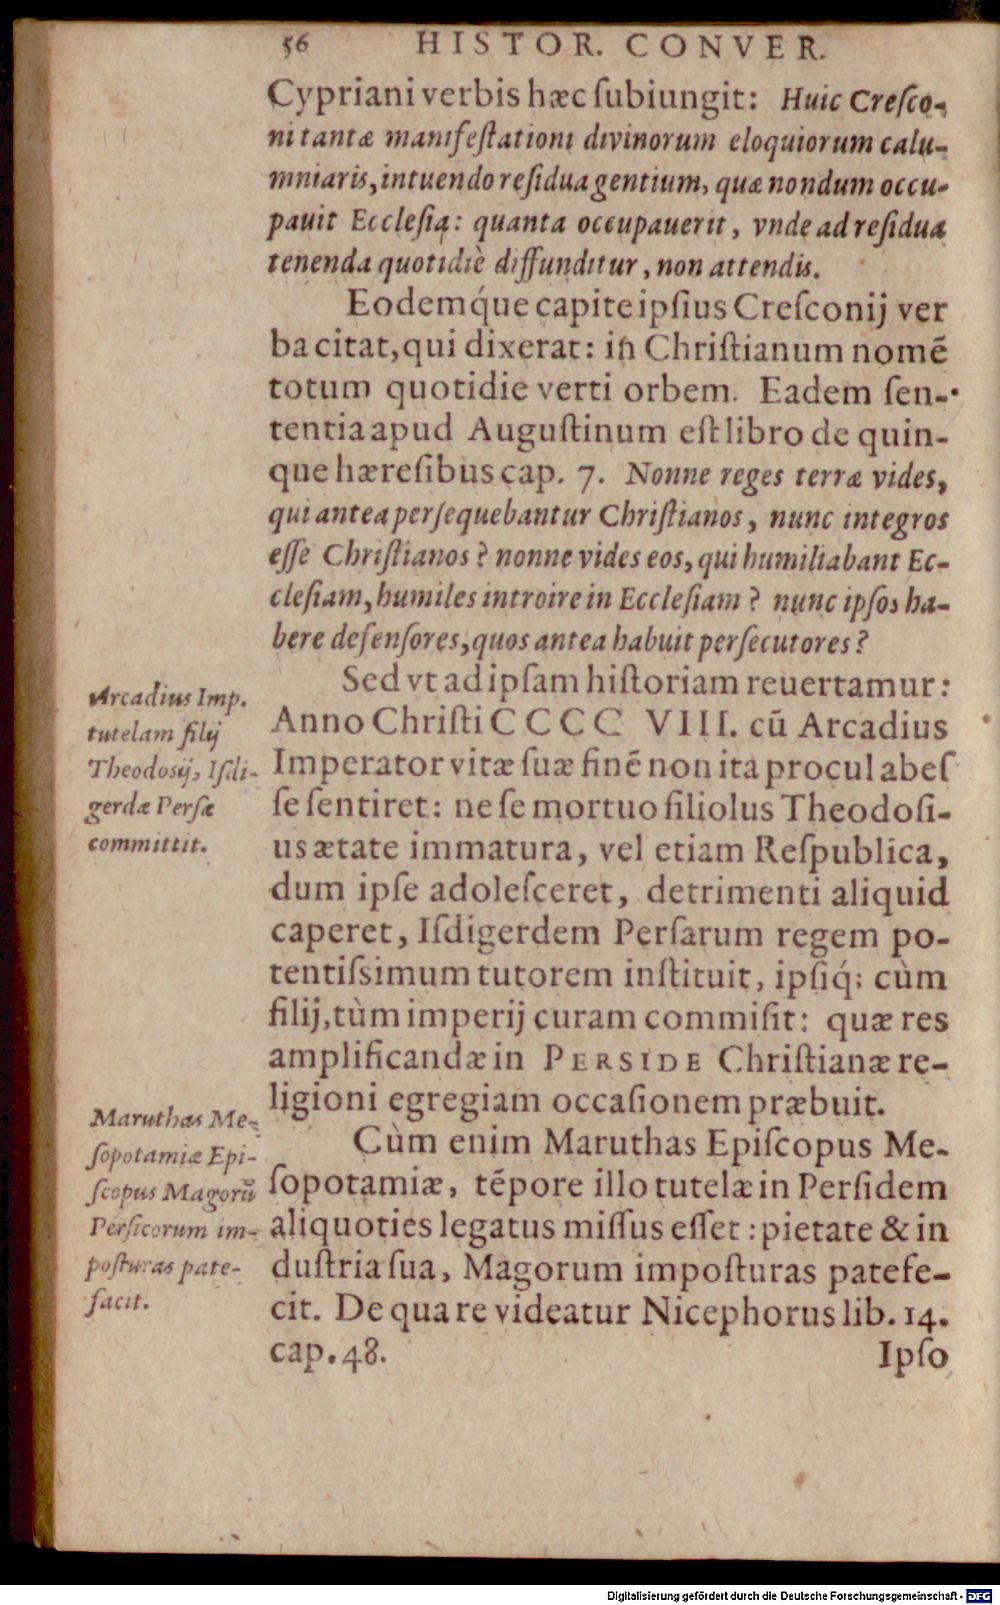 56 HISTOR. CONVER.
Cypriani verbis hæc ſubiungit: Huic Creſco-
ni tantæ manifeſtationi divinorum eloquiorum calu-
mniaris, intuendo reſidua gentium, quæ nondum occu-
pauit Eccleſia: quanta occupauerit, vnde ad reſidua
tenenda quotidiè diffunditur, non attendis.
Eodemq́ue capite ipſius Creſconij ver
ba citat, qui dixerat: in Chriſtianum nomē
totum quotidie verti orbem. Eadem ſen-
tentia apud Auguſtinum eſt libro de quin-
que hæreſibus cap. 7. Nonne reges terræ vides,
qui antea perſequebantur Chriſtianos, nunc integros
eſſe Chriſtianos? nonne vides eos, qui humiliabant Ec-
cleſiam, humiles introire in Eccleſiam? nunc ipſos ha-
bere defenſores, quos antea habuit perſecutores?
Sed vt ad ipſam hiſtoriam reuertamur:
Anno Chriſti CCCC VIII. cū Arcadius
Imperator vitæ ſuæ finē non ita procul abeſ
ſe ſentiret: ne ſe mortuo filiolus Theodoſi-
us ætate immatura, vel etiam Reſpublica,
dum ipſe adoleſceret, detrimenti aliquid
caperet, Iſdigerdem Perſarum regem po-
tentiſsimum tutorem inſtituit, ipſiq́; cùm
filij, tùm imperij curam commiſit: quæ res
amplificandæ in PERSIDE Chriſtianæ re-
ligioni egregiam occaſionem præbuit.
Cùm enim Maruthas Epiſcopus Me-
ſopotamiæ, tēpore illo tutelæ in Perſidem
aliquoties legatus miſſus eſſet: pietate & in
duſtria ſua, Magorum impoſturas patefe-
cit. De qua re videatur Nicephorus lib. 14.
cap. 48.
Ipſo
Arcadius Imp.
tutelam filij
Theodosij, Iſdi-
gerdæ Perſæ
committit.
Maruthas Me-
ſopotamiæ Epi-
ſcopus Magorū
Perſicorum im-
poſturas pate-
facit.
Digitalisierung gefördert durch die Deutsche Forschungsgemeinschaft - DFG